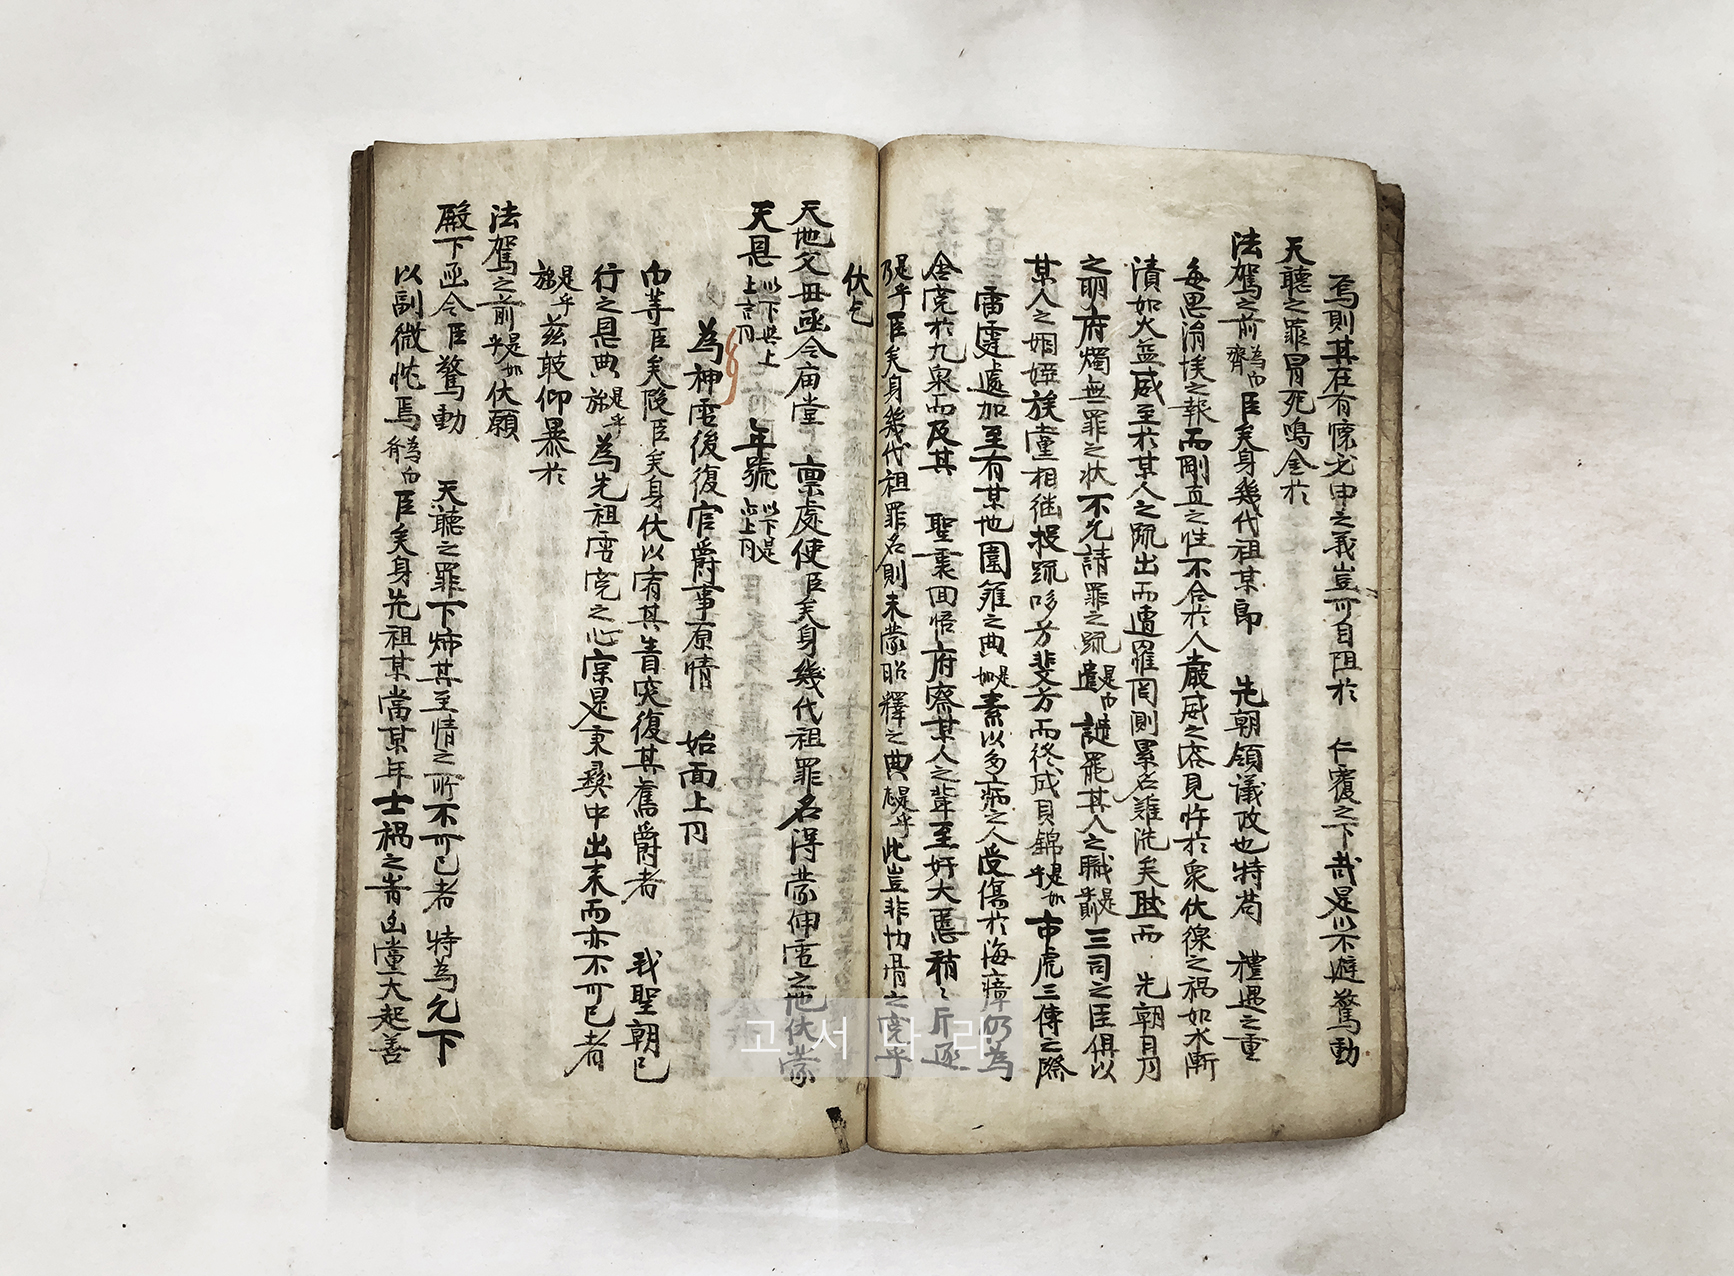 焉則其在有懷必申之義豈可自阻於 仁覆之下哉是以不避驚動
天聽之罪冒死鳴金於
法駕之前為白齊臣矣身幾代祖某郎 先朝領議政也特荷 禮遇之重
每思涓埃之報而剛直之性不合於人嚴威之容見忤於衆伏猭之禍如水漸
漬如火益威至於某人之疏出而遭罹罔測累名難洗矣 而 先朝自刀
之明府燭無罪之状不允請罪之疏 是白 罷其人之職是 三司之臣俱以
某人之姻婭族黨相継投疏哆芳斐芳而終成貝錦是如乎市虎三傳之際
雷霆遽加至有某地圍籬之典是如素以多病之人受傷於海瘴仍為
含寃於九泉而及其 聖衷回悟府察某人之輩至奸大慝稍々斥逐
是乎 臣矣身幾代祖罪名則未蒙昭釋之典是乎 此豈非切 之寃乎
伏乞
天地父母亟令庙堂 禀處使臣矣身幾代祖罪名得蒙伸雪之地伏蒙
天恩以下與上上言同 年號以下是 上同
為神雪後復官爵事原情 始面上同
白等臣矣段臣矣身伏以宥其眚突復其舊爵者 我聖朝已
行之恩典是乎 為先祖雪寃之心寔是秉彜中出来而亦不可已者
是乎 茲敢仰暴於
法駕之前是如乎伏願
殿下亟令臣驚動 天聽之罪下 其至情之所不可已者 特為允下
以副微忱焉 為白 臣矣身先祖某當某年士禍之 凶黨大起善
고서나라